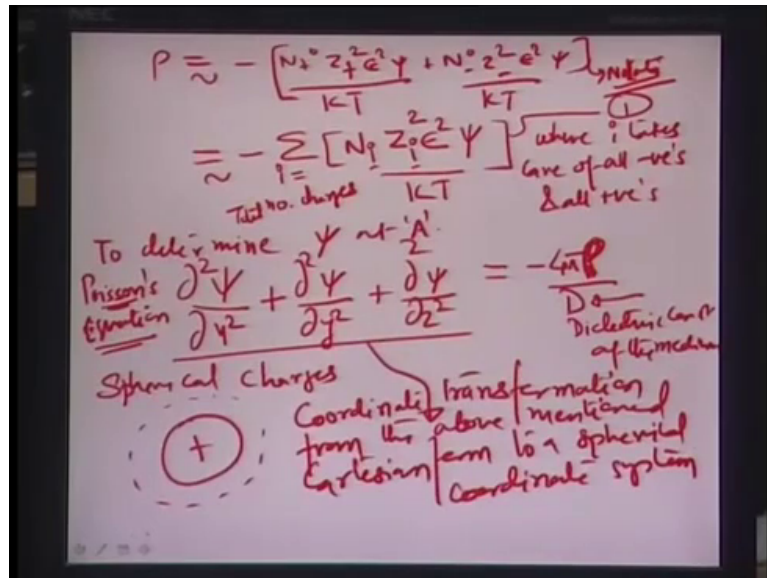 NEC
ρ ≅ - [N₊° Z₊² ε² ψ / KT + N₋° Z₋² ε² ψ / KT] → 
①
≅ - Σ i= [Nᵢ Zᵢ² ε² ψ / KT] where i takes
Total no. charges
care of all -ve's
& all +ve's
To determine ψ at 'A'.
Poisson's Equation ∂²ψ/∂x² + ∂²ψ/∂y² + ∂²ψ/∂z² = -4πρ/D
Dielectric Const of the medium
Spherical Charges
Coordinate transformation
from the above mentioned
Cartesian form to a spherical
coordinate system
+